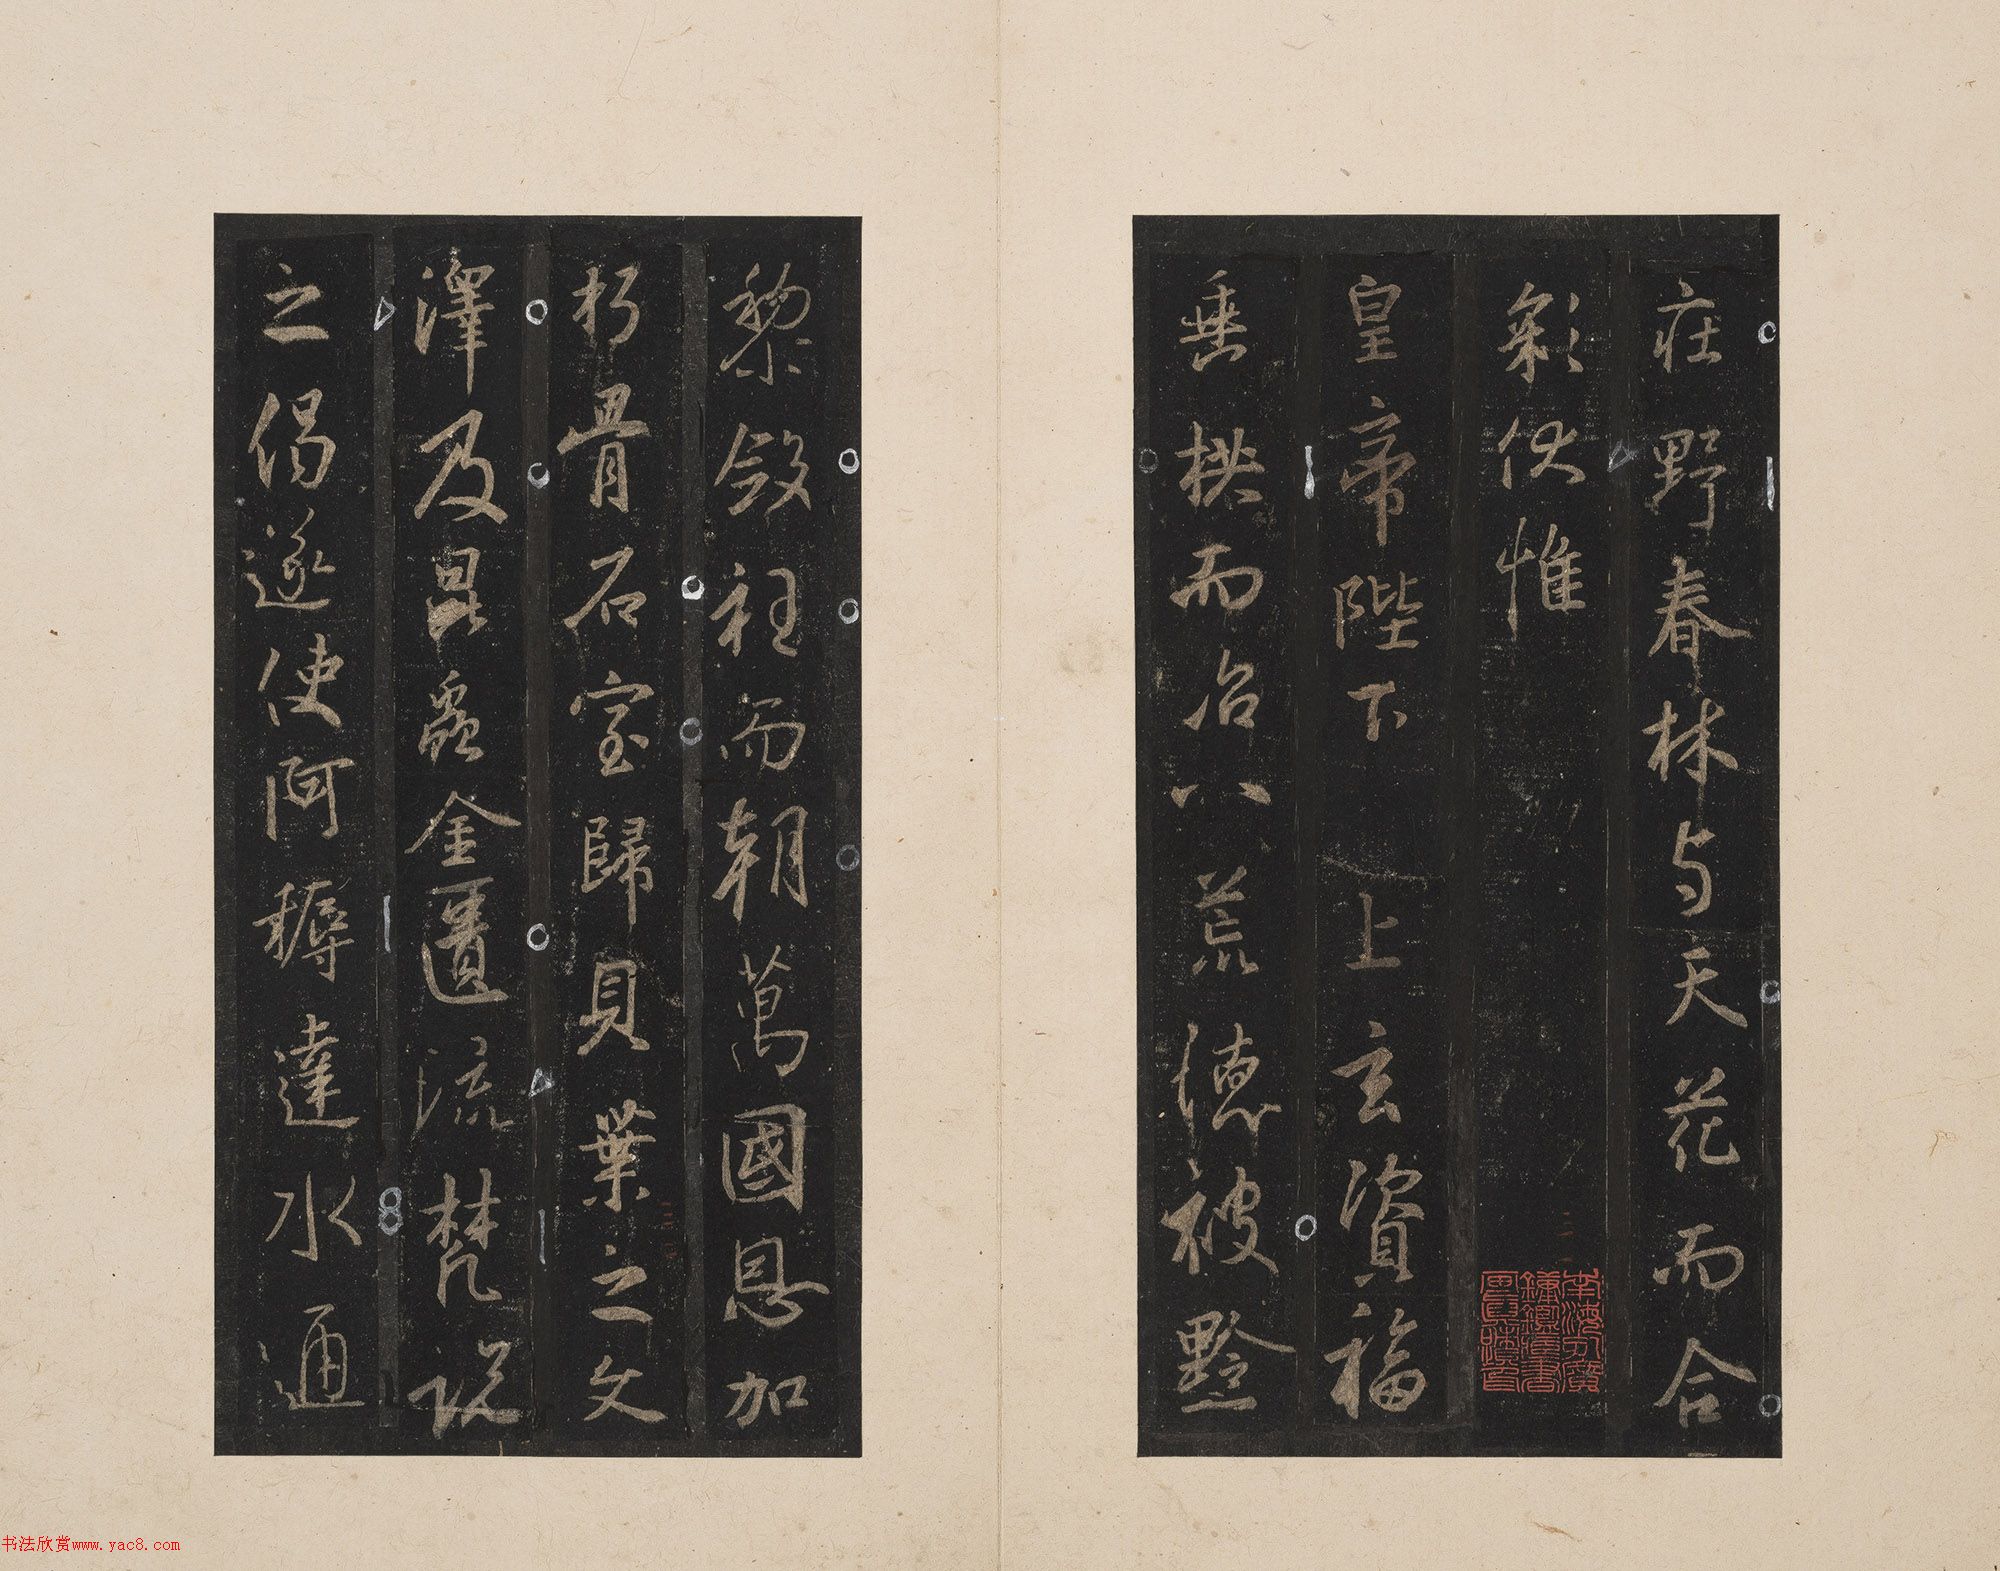 莊野春林与天花而合
彩伏惟
皇帝陛下上玄資福
垂拱而治八荒德被黔
黎斂衽而朝萬國恩加
朽骨石室歸貝葉之文
澤及昆蟲金匱流梵説
之偈遂使阿耨達水通
书法欣赏www.yac8.com